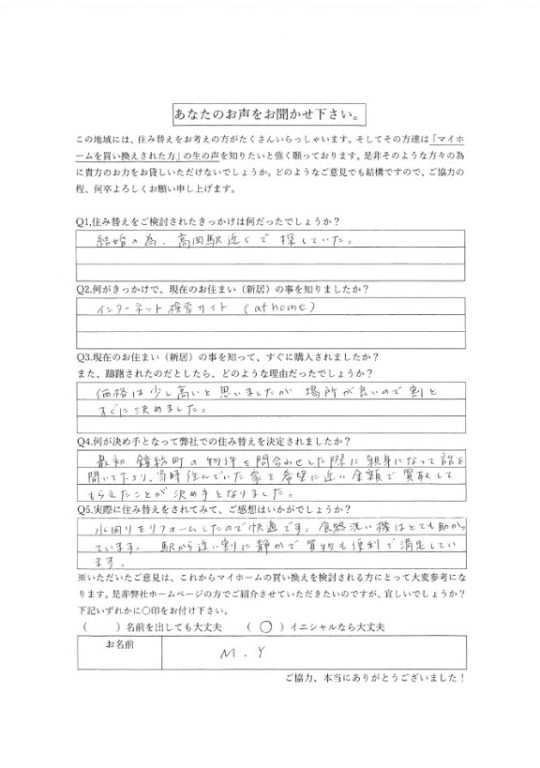 あなたのお声をお聞かせ下さい。
この地域には、住み替えをお考えの方がたくさんいらっしゃいます。そしてその方達は「マイホ
ームを買い換えされた方」の生の声を知りたいと強く願っております。是非そのような方々の為
に貴方のお力をお貸しいただけないでしょうか。どのようなご意見でも結構ですので、ご協力の
程、何卒よろしくお願い申し上げます。
Q1,住み替えをご検討されたきっかけは何だったでしょうか?
結婚の為、高岡駅近くで探していた。
Q2.何がきっかけで、現在のお住まい(新居)の事を知りましたか?
インターネット検索サイト (at home)
Q3.現在のお住まい(新居)の事を知って、すぐに購入されましたか?
また、躊躇されたのだとしたら、どのような理由だったでしょうか?
価格は少し高いと思いましたが 場所が良いので割と
すぐに決めました。
Q4.何が決め手となって弊社での住み替えを決定されましたか?
最初 鐘紡町の物件を問合わせした際に親身になって話を
聞いて下さり、当時住んでいた家を希望に近い金額で買取して
もらえたことが決め手となりました。
Q5.実際に住み替えをされてみて、ご感想はいかがでしょうか?
水回りをリフォームしたので快適です。食器洗い機はとても助かっ
ています。 駅から近い割に静かで買物も便利で満足してい
ます。
※いただいたご意見は、これからマイホームの買い換えを検討される方にとって大変参考にな
ります。是非弊社ホームページの方でご紹介させていただきたいのですが、宜しいでしょうか?
下記いずれかに〇印をお付け下さい。
( )名前を出しても大丈夫 (〇)イニシャルなら大丈夫
お名前 M.Y
ご協力、本当にありがとうございました!